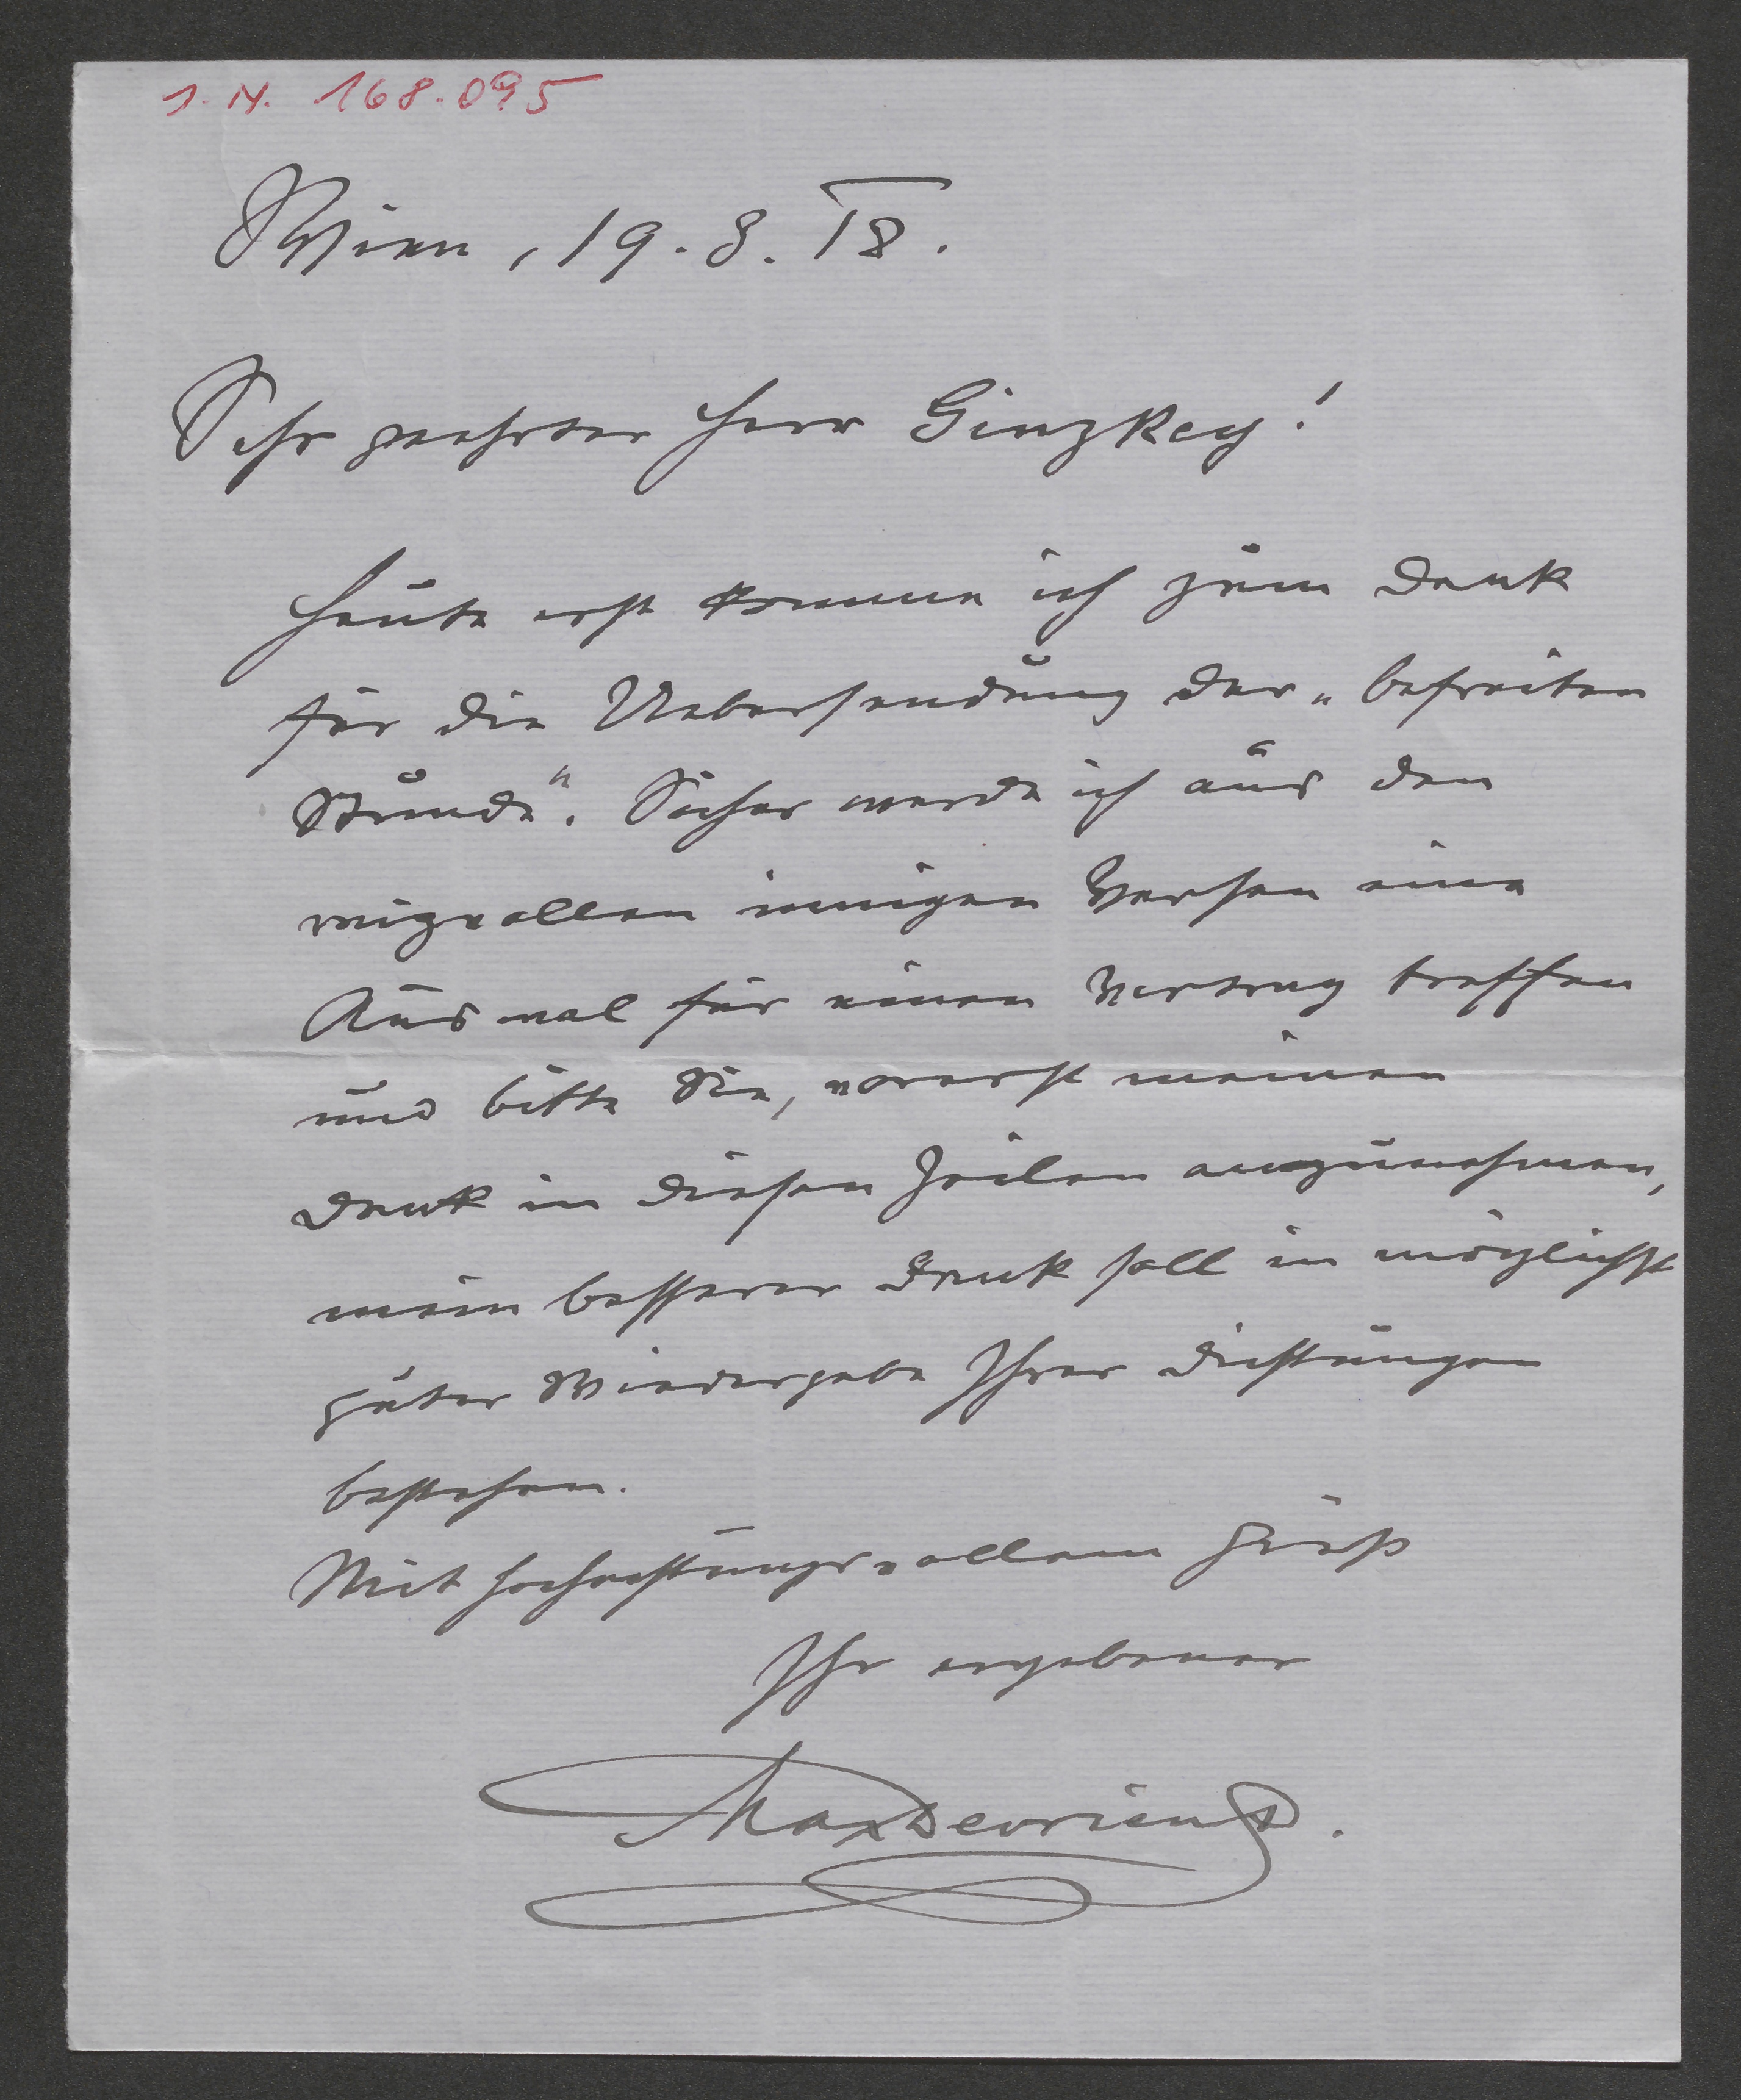 J. N. 168.095
Wien, 19. 8. 18.
Sehr geehrter Herr Ginzkey!
Heute erst komme ich zum Dank
für die Uebersendung der „befreiten
Stunde“. Sicher werde ich aus den
reizvollen innigen Versen eine
Auswal für einen Vortrag treffen
und bitte Sie, vorerst meinen
Dank in diesen Zeilen anzunehmen,
mein besserer Dank soll in möglichst
guter Wiedergabe Ihrer Dichtungen
bestehen.
Mit hochachtungsvollem Gruß
Ihr ergebener
Max Devrient.